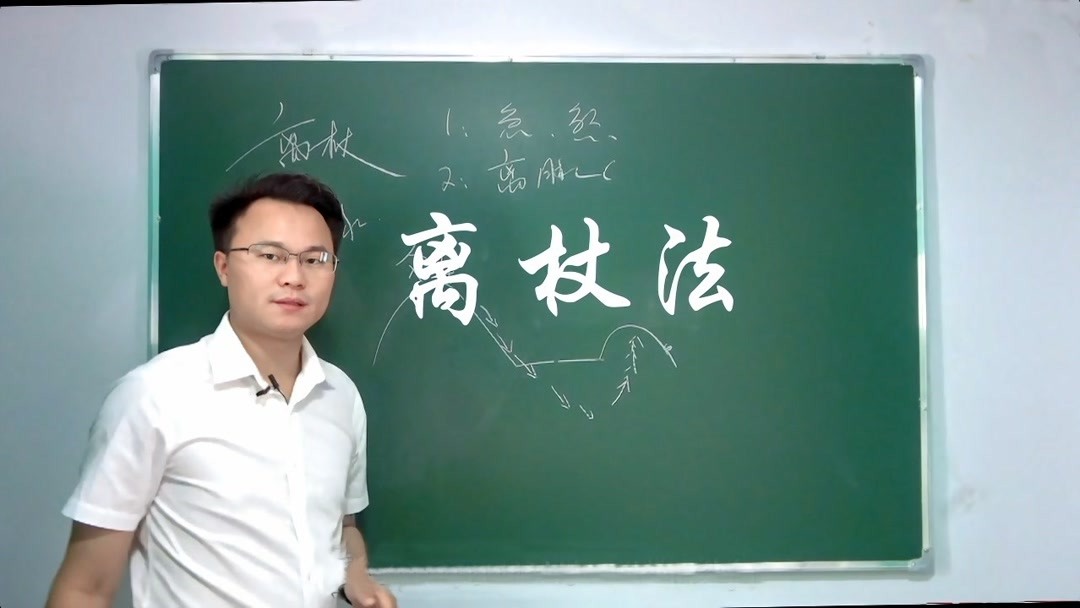 离杖
1: 急.煞
2: 离脉
离杖法